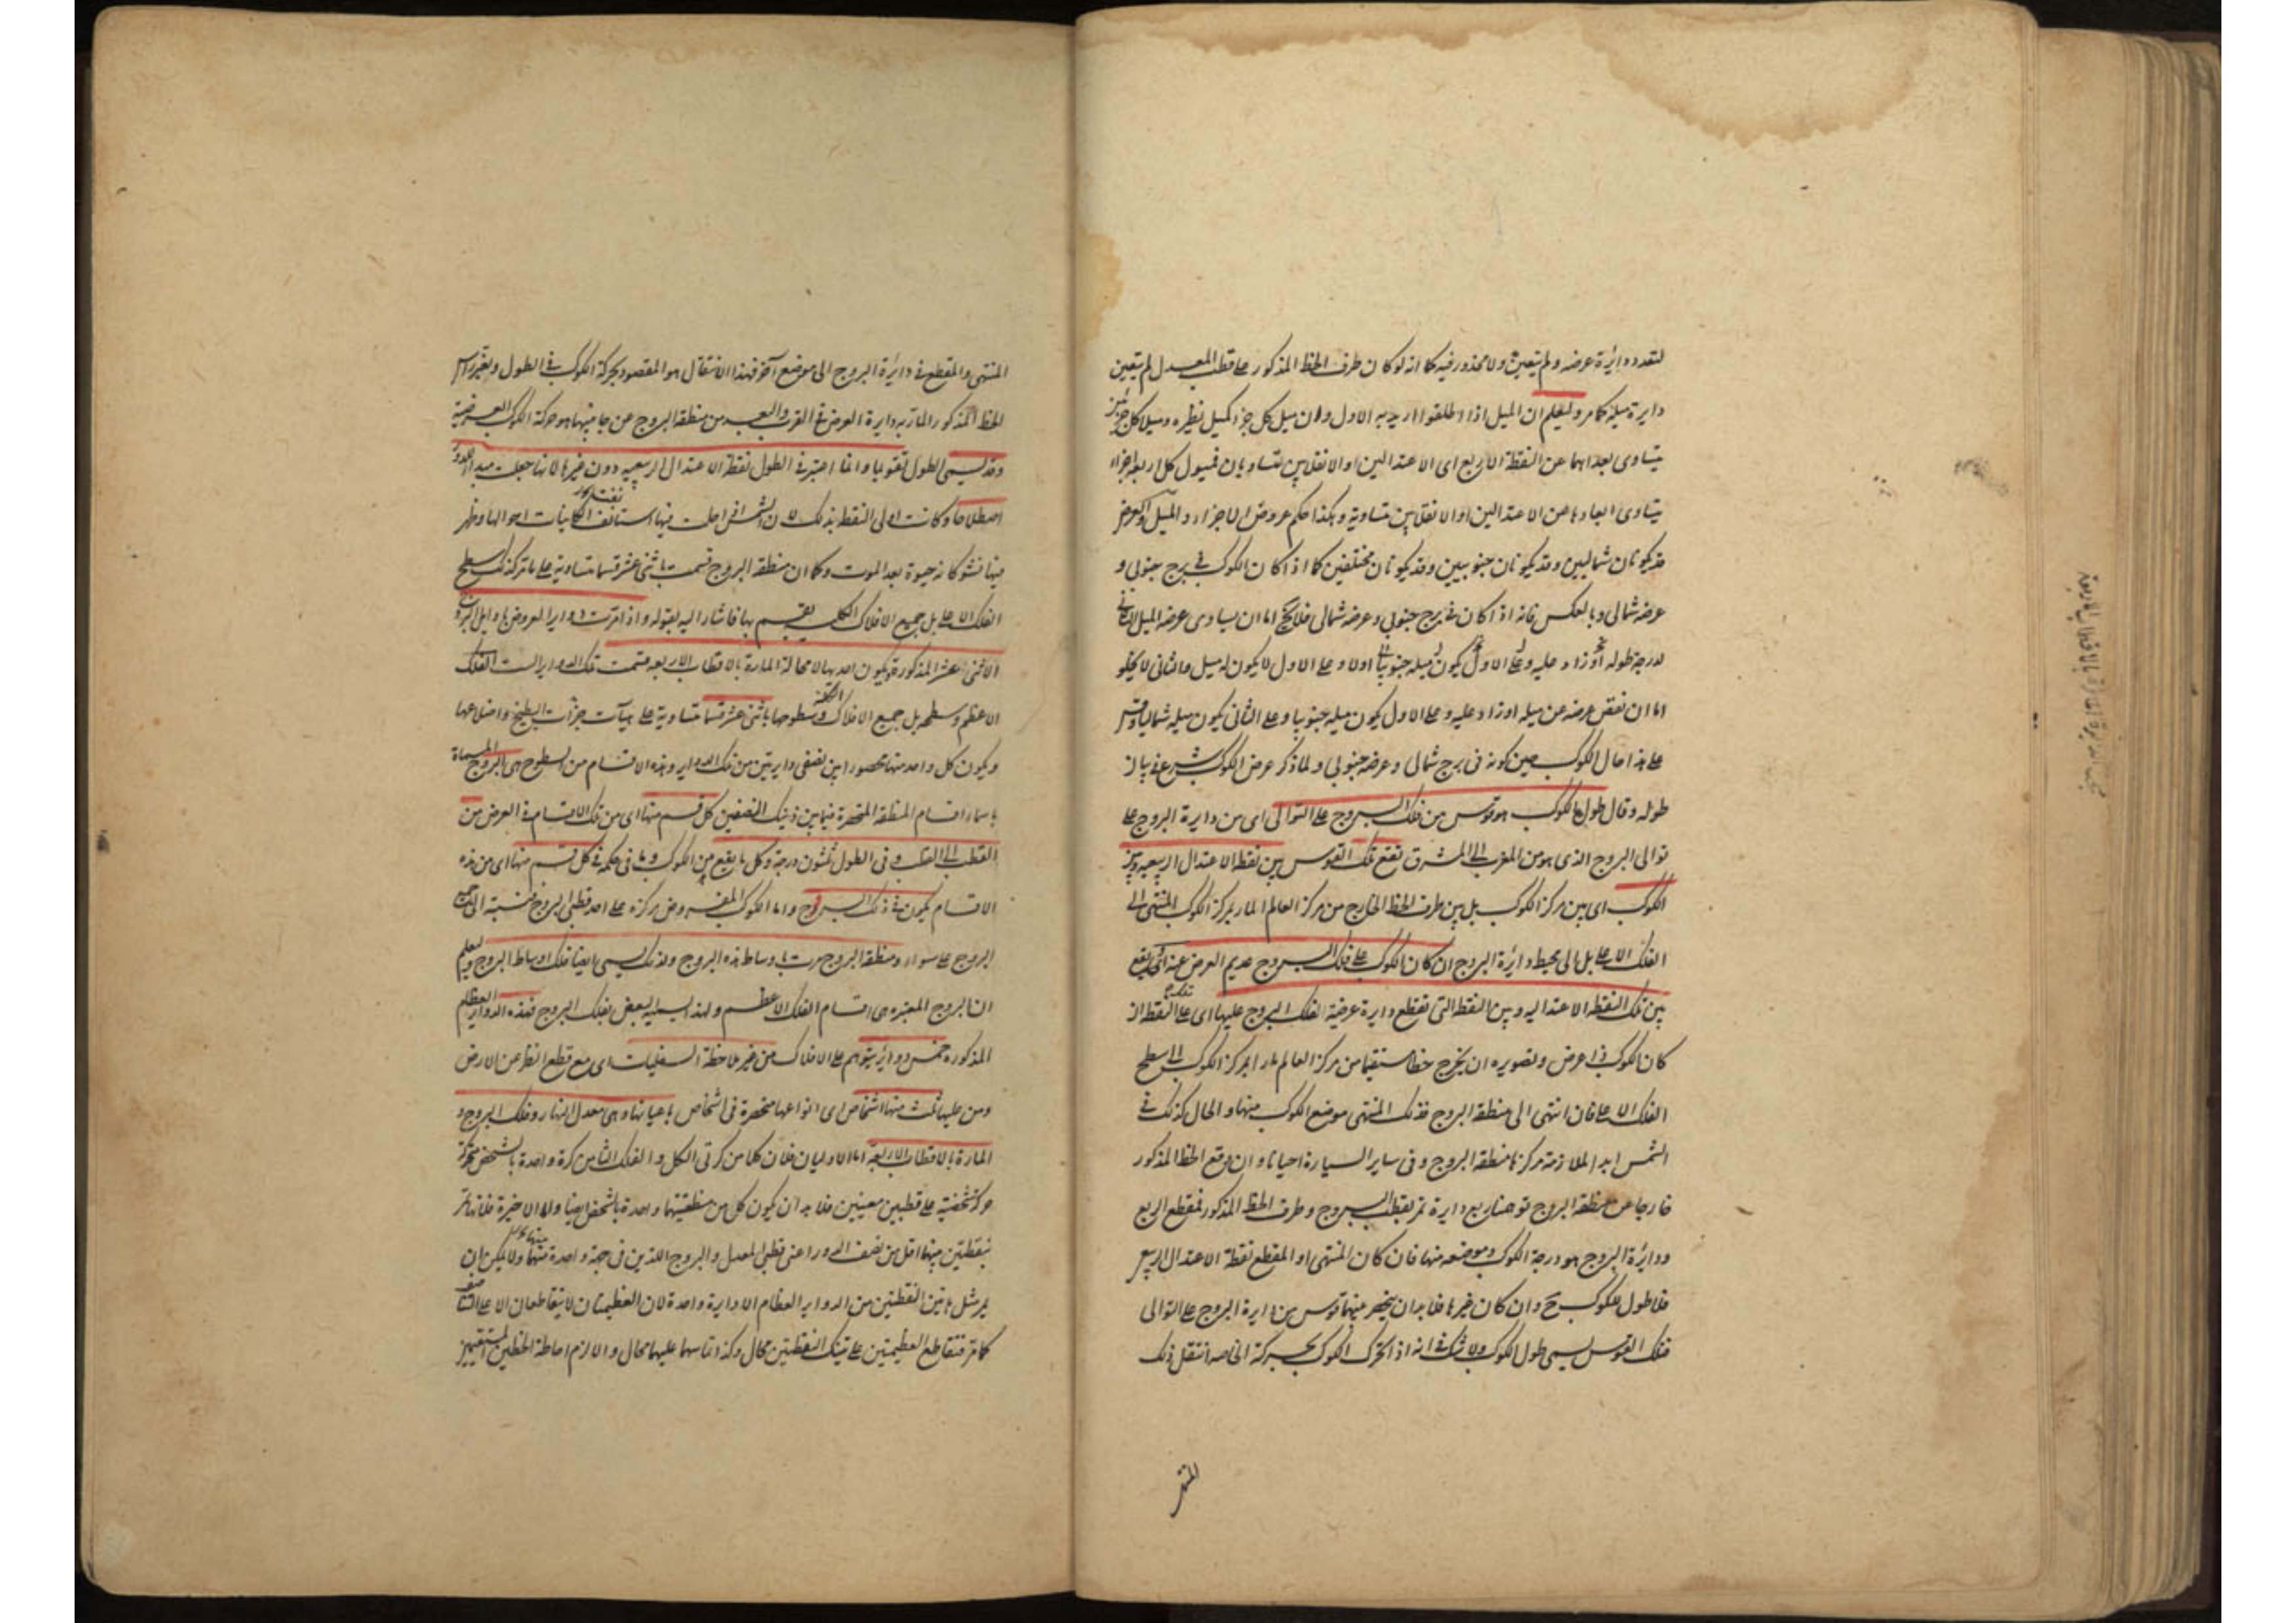 لتعدد دائرة عرضه ولم يتعين ولا محذور فيه كما انه لو كان طرف الخط المذكور على قطب المعدل لم يتعين
دايرة ميله كما مر وليعلم ان الميل اذا اطلقوا اريد به الاول وان ميل كل جزء كميل نظيره وميلا كل جزئين
يتساوى بعداهما عن النقطة الاربع اى الاعتدالين او الانقلابين متساويان فميول كل اربعة اجزاء
يتساوى ابعادها عن الاعتدالين او الانقلابين متساوية وهكذا حكم عروض الاجزاء والميل والعرض
قد يكونان شماليين وقد يكونان جنوبيين وقد يكونان مختلفين كما اذا كان الكوكب فى برج جنوبى و
عرضه شمالى وبالعكس فانه اذا كان فى برج جنوبى وعرضه شمالى فلا يخ اما ان يساوى عرضه الميل الثانى
لدرجة طوله او زاد عليه وعلى الاول يكون ميله جنوبيا اولا وعلى الاول لا يكون له ميل والثانى لا يخلو
اما ان نقص عرضه عن ميله او زاد عليه وعلى الاول يكون ميله جنوبيا وعلى الثانى يكون ميله شماليا وقس
على هذا حال الكوكب حين كونه فى برج شمالى وعرضه جنوبى ولما ذكر عرض الكوكب شرع فى بيان
طوله وقال طول الكوكب هو قوس من فلك البروج على التوالى اى من دايرة البروج على
توالى البروج الذى هو من المغرب الى المشرق تقع تلك القوس بين نقطة الاعتدال الربيعى وبين
الكوكب اى بين مركز الكوكب بل بين طرف الخط الخارج من مركز العالم المار بمركز الكوكب المنتهى الى
الفلك الاعلى بل الى محيط دائرة البروج ان كان الكوكب على فلك البروج عديم العرض عنه او يقع
بين تلك النقطة الاعتدالية وبين النقطة التى تقطع دايرة عرضية الفلك البروج عليها اى على تلك النقطة ان
كان الكوكب ذا عرض وتصويره ان يخرج خطا مستقيما من مركز العالم مارا بمركز الكوكب الى سطح
الفلك الاعلى فان انتهى الى منطقة البروج فذلك المنتهى موضع الكوكب منها والحال كذلك فى
الشمس ابدا لملازمة مركزها منطقة البروج وفى ساير السيارة احيانا وان وقع الخط المذكور
خارجا عن منطقة البروج توهمنا ربع دايرة تمر بقطب البروج وطرف الخط المذكور فمقطع الربع
ودائرة البروج هو درجة الكوكب وموضعه منها فان كان المنتهى او المقطع نقطة الاعتدال الربيعى
فلا طول للكوكب ح وان كان غيرها فلا بد ان ينحصر بينهما قوس من دايرة البروج على التوالى
فتلك القوس يسمى طول الكوكب ولا شك فى انه اذا تحرك الكوكب بحركته الخاصة انتقل ذلك
المنتهى
المنتهى والمقطع فى دائرة البروج الى موضع آخر فهذا الانتقال هو المقصود بحركة الكوكب فى الطول وبقرب راس
الخط المذكور المار به دايرة العرض فى القرب والبعد من منطقة البروج عن جانبيها هو حركة الكوكب العرضية
وقد يسمى الطول تقويما وانما اعتبر فى الطول نقطة الاعتدال الربيعى دون غيرها لانها جعلت مبدا الدور
اصطلاحا وكانت اولى النقط بذلك لان الشمس اذا حلت فيها استانف الكاينات احوالها وظهر
فيها نشو كانه حيوة بعد الموت وكما ان منطقة البروج قسمت باثنى عشر قسما متساوية على ما مر كذلك سطح
الفلك الاعلى بل جميع الافلاك الكلية ينقسم بها فاشار اليه بقوله واذا مرت دواير العروض باوايل البروج
الاثنى عشر المذكورة ويكون احدها لا محالة المارة بالاقطاب الاربعة قسمت تلك الدواير الست الفلك
الاعظم وسطحه بل جميع الافلاك وسطوحها باثنى عشر قسما متساوية على هيآت حزات البطيخ واضلاعها
ويكون كل واحد منها محصورا بين نصفى دايرتين من تلك الدواير وهذه الاقسام من السطوح هى البروج المسماة
باسماء اقسام المنطقة المنحصرة فيما بين ذينك النصفين كل قسم منها اى من تلك الاقسام فى العرض من
القطب الى القطب وفى الطول ثلثون درجة وكل ما يقع من الكوكب وما فى حكمه فى كل قسم منها اى من هذه
الاقسام يكون فى ذلك البروج واما الكوكب المفروض مركزه على احد قطبى البروج فنسبته الى جميع
البروج على سواء ومنطقة البروج مرت باوساط هذه البروج ولذلك يسمى ايضا فلك اوساط البروج وليعلم
ان البروج المعتبرة هى اقسام الفلك الاعظم ولهذا يسميه البعض بفلك البروج فهذه الدواير العظام
المذكورة خمس دوائر يتوهم على الافلاك من غير ملاحظة السفليات اى مع قطع النظر عن الارض
ومن عليها ثلث منها اشخاص اى انواعها منحصرة فى اشخاص باعيانها وهى معدل النهار وفلك البروج و
المارة بالاقطاب الاربعة اما الاوليان فلان كلا من كرتى الكل والفلك الثامن كرة واحدة بالشخص متحركة
حركة شخصية على قطبين معينين فلا بد ان يكون كل من منطقتيهما واحدة بالشخص ايضا واما الاخيرة فلانها تمر
بنقطتين بينهما اقل من نصف الدور اعنى قطبى المعدل والبروج اللذين فى جهة واحدة منهما ولا يمكن ان
يمر بمثل هاتين النقطتين من الدواير العظام الا دايرة واحدة لان العظيمتان لا يتقاطعان الا على التناصف
كما مر فتقاطع العظيمتين على تينك النقطتين محال وكذا تماسهما عليهما محال والا لزم احاطة الخطين المستقيمين